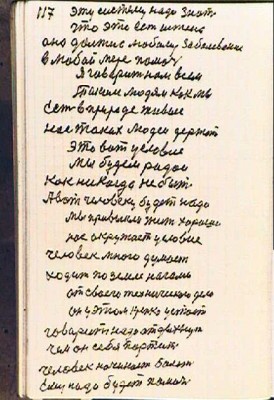 117 Эту систему надо знать
что это ест истено
оно должно любому заболевани
в любой мере помоч
Я говорит нам всем
Таким людям как мы
Ест в природе живые
нас таких людеи держат
Это вот условие
мы будем радои
как никогда не быт
А вот человеку будет надо
мы привыкли жит хорошо
нас окружает условие
человек много думает
ходит по земле ногами
от своего технического дело
он у этом крепко устает
говарит надо отдохнут
чем он себя портит
человек начинает болет
Ему надо будет помоч